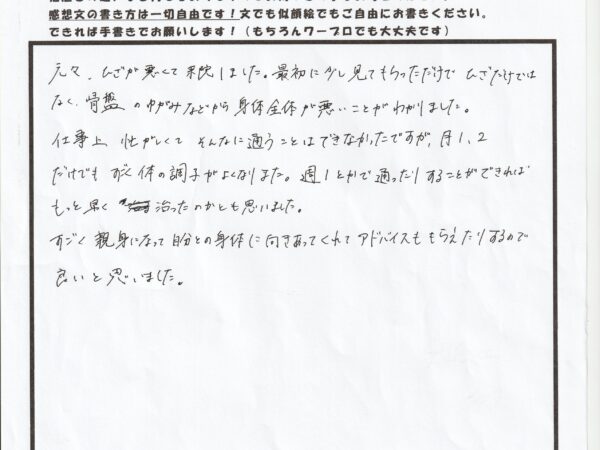 感想文の書き方は一切自由です！文でも似顔絵でもご自由にお書きください。
できれば手書きでお願いします！（もちろんワープロでも大丈夫です）
元々、ひざが悪くて来院しました。最初に少し見てもらっただけで ひざだけでは
なく、骨盤のゆがみなどから身体全体が悪いことがわかりました。
仕事上 忙がしくて そんなに通うことはできなかったですが、月1、2
だけでも すごく体の調子がよくなりました。週1とかで通ったりすることができれば
もっと早く 治ったのかとも思いました。
すごく親身になって自分との身体に向きあってくれてアドバイスももらえたりするので
良いと思いました。